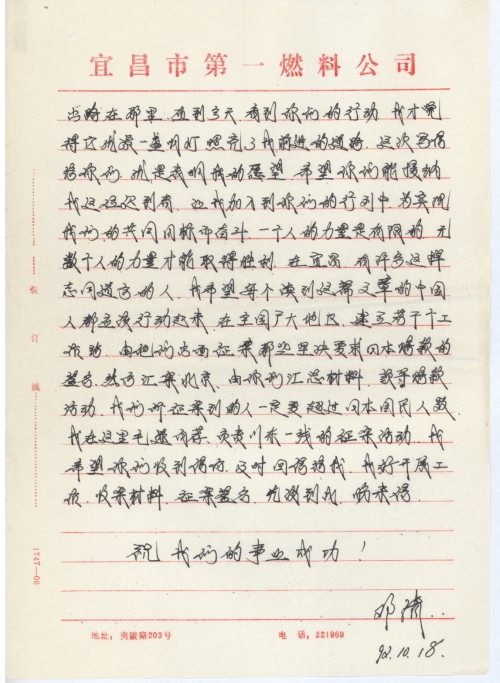 宜昌市第一燃料公司
当时在那里，直到今天，看到你们的行动，我才觉
得它就象一盏明灯照亮了我前进的道路，这次写信
给你们，就是表明我的愿望，希望你们能接纳
我这个迟到者，让我加入到你们的行列中，为实现
我们的共同目标而奋斗，一个人的力量是有限的，无
数个人的力量才能取得胜利，在宜昌，有许多这样
志同道合的人，我希望每个读到这篇文章的中国
人都应该行动起来，在全国广大地区，建立若干个工
作站，由他们出面征集那些坚决要求日本赔款的
签名，然后汇集北京，由你们汇总材料，教导赔款
活动，我们所征集到的人一定要超过日本国民人数，
我在这里毛遂自荐，负责川东一线的征集活动，我
希望你们收到信后，及时回信给我，我好开展工
作，收集材料，征集签名，先谈到此，盼来信
祝我们的事业成功！
邓清
92.10.18.
地址：夷陵路203号 电话：221969
装订线
1747—06